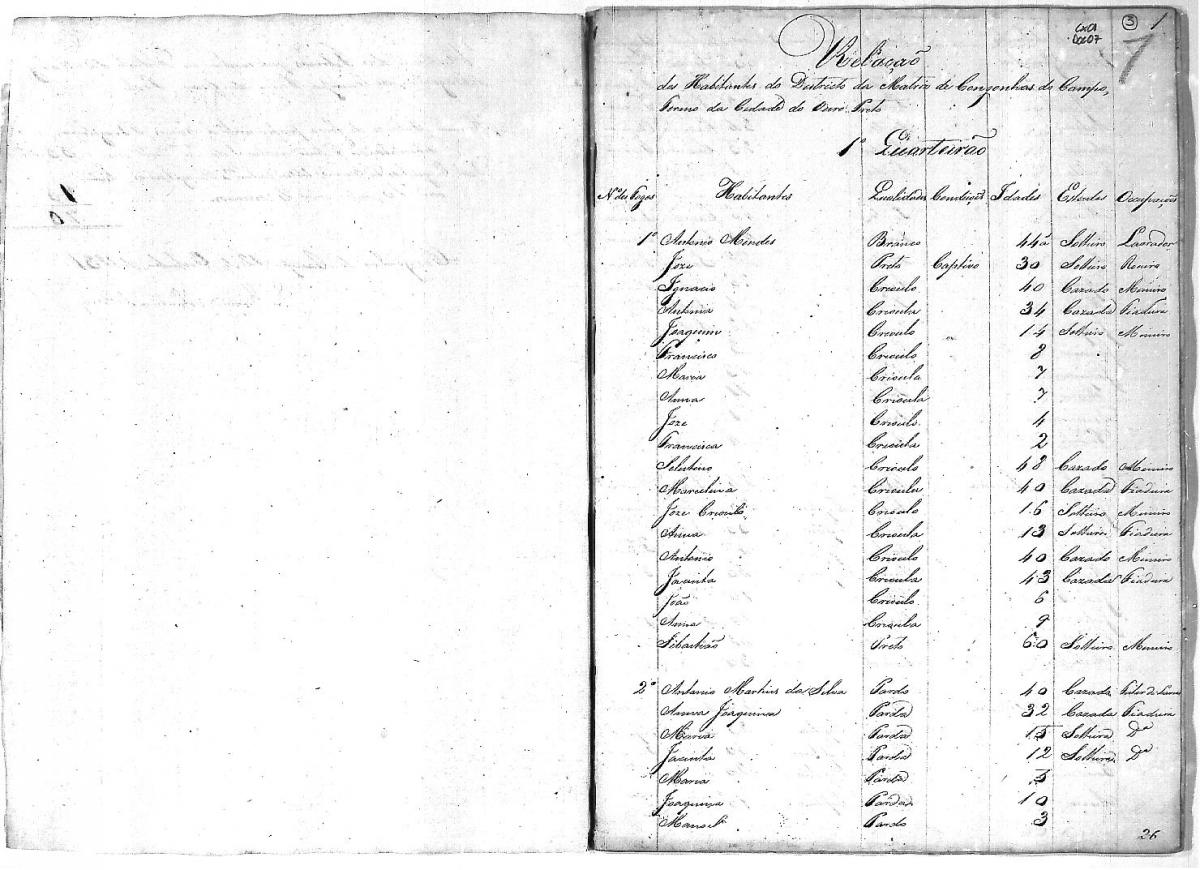 Cx01
Doc07
3
1
7
Relação
dos Habitantes do Districto da Matriz de Congonhas do Campo,
Termo da Cidade do Ouro Preto
1º Quarteirão
Nº dos Fogos Habitantes Qualidades Condições Idades Estados Ocupações
1º Antonio Mendes Branco 44 a Solteiro Lavrador
Joze Preto Captivo 30 Solteiro
Ignacio Crioulo 40 Cazado Mineiro
Antonia Crioula 34 Cazada Fiadeira
Joaquim Crioulo 14 Solteiro Mineiro
Francisco Crioulo 8
Maria Crioula 7
Anna Crioula 7
Joze Crioulo 4
Francisca Crioula 2
Crioulo 48 Cazado Mineiro
Marcelina Crioula 40 Cazada Fiadeira
Joze Crioulo Crioulo 16 Solteiro Mineiro
Anna Crioula 13 Solteira Fiadeira
Antonio Crioulo 40 Cazado Mineiro
Jacinta Crioula 43 Cazada Fiadeira
João Crioulo 6
Anna Crioula 9
Sebastião Preto 60 Solteiro Mineiro
2º Antonio Martins da Silva Pardo 40 Cazado
Anna Joaquina Parda 32 Cazada Fiadeira
Maria Parda 15 Solteira Dª
Jacinta Parda 12 Solteira Dª
Maria Parda 5
Joaquina Parda 10
Manoel Pardo 3
26